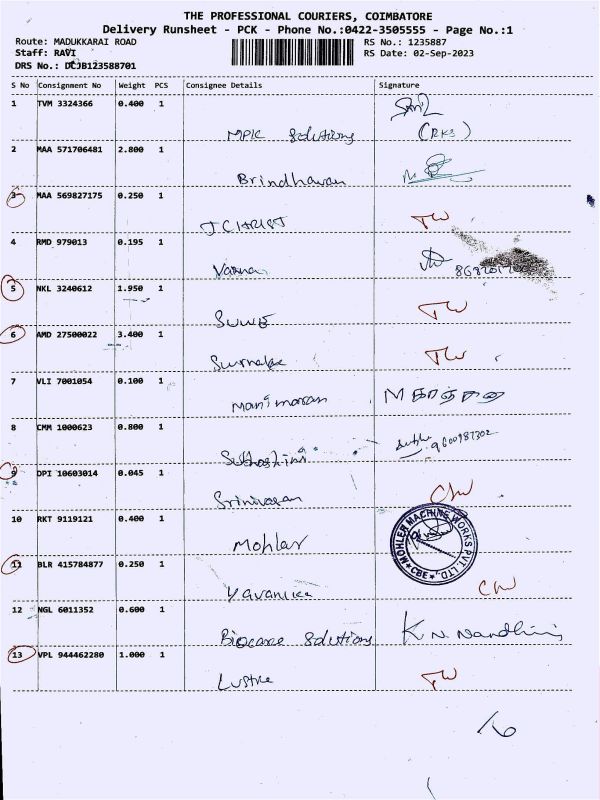 THE PROFESSIONAL COURIERS, COIMBATORE
Delivery Runsheet - PCK - Phone No.:0422-3505555 - Page No.:1
Route: MADUKKARAI ROAD
Staff: RAVI
DRS No.: DCJB123588701
RS No.: 1235887
RS Date: 02-Sep-2023
S No Consignment No Weight PCS Consignee Details Signature
1 TVM 3324366 0.400 1
MPIC Solutions (RKS)
2 MAA 571706481 2.800 1
Brindhavan
3 MAA 569827175 0.250 1
J CHRIST TW
4 RMD 979013 0.195 1
5 NKL 3240612 1.950 1
TW
6 AMD 27500022 3.400 1
TW
7 VLI 7001054 0.100 1
Manimaran
8 CMM 1000623 0.800 1
Subhashini 9600987302
9 DPI 10603014 0.045 1
Srinivasan
10 RKT 9119121 0.400 1
Mohler MOHLER MACHINE WORKS PVT. LTD CBE
11 BLR 415784877 0.250 1
12 NGL 6011352 0.600 1
Biocare Solutions K N Nandhini
13 VPL 944462280 1.000 1
Lustre TW